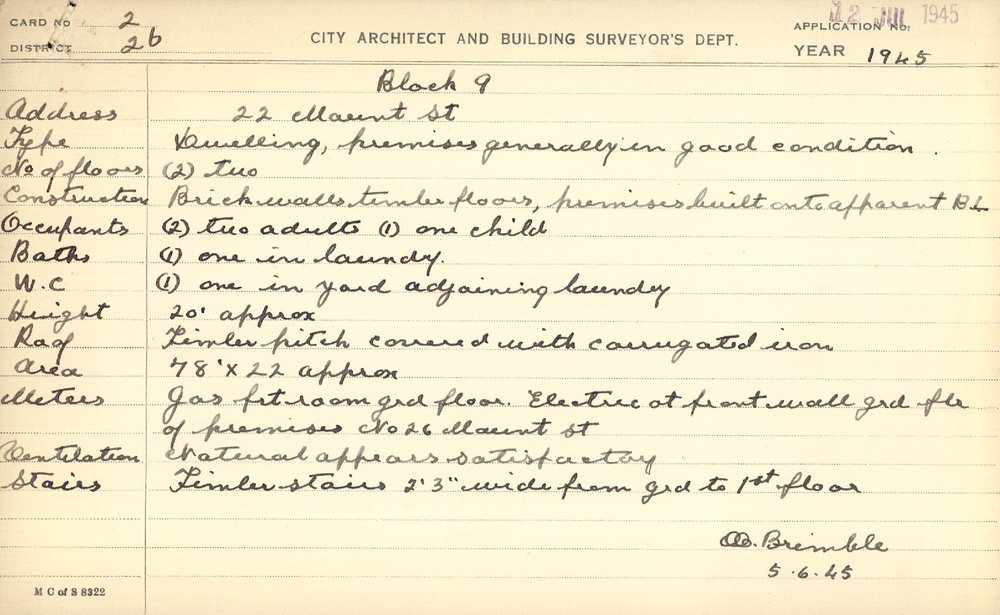 CARD No 2
DISTRICT 26
CITY ARCHITECT AND BUILDING SURVEYOR'S DEPT.
12 JUL 1945
APPLICATION No:
YEAR 1945
Block 9
Address 22 Mount St
Type Dwelling, premises generally in good condition.
No of floors (2) two
Construction Brick walls timber floors, premises built onto apparent BL
Occupants (2) two adults (1) one child
Baths (1) one in laundry.
W.C (1) one in yard adjoining laundry
Height 20' approx
Roof Timber pitch covered with corrugated iron
Area 78' x 22 approx
Meters Gas frt room grd floor. Electric at front wall grd flr
of premises No 26 Mount St
Ventilation Natural appears satisfactory
Stairs Timber stairs 2'3" wide from grd to 1st floor
Brimble
5.6.45
M C of S 8322